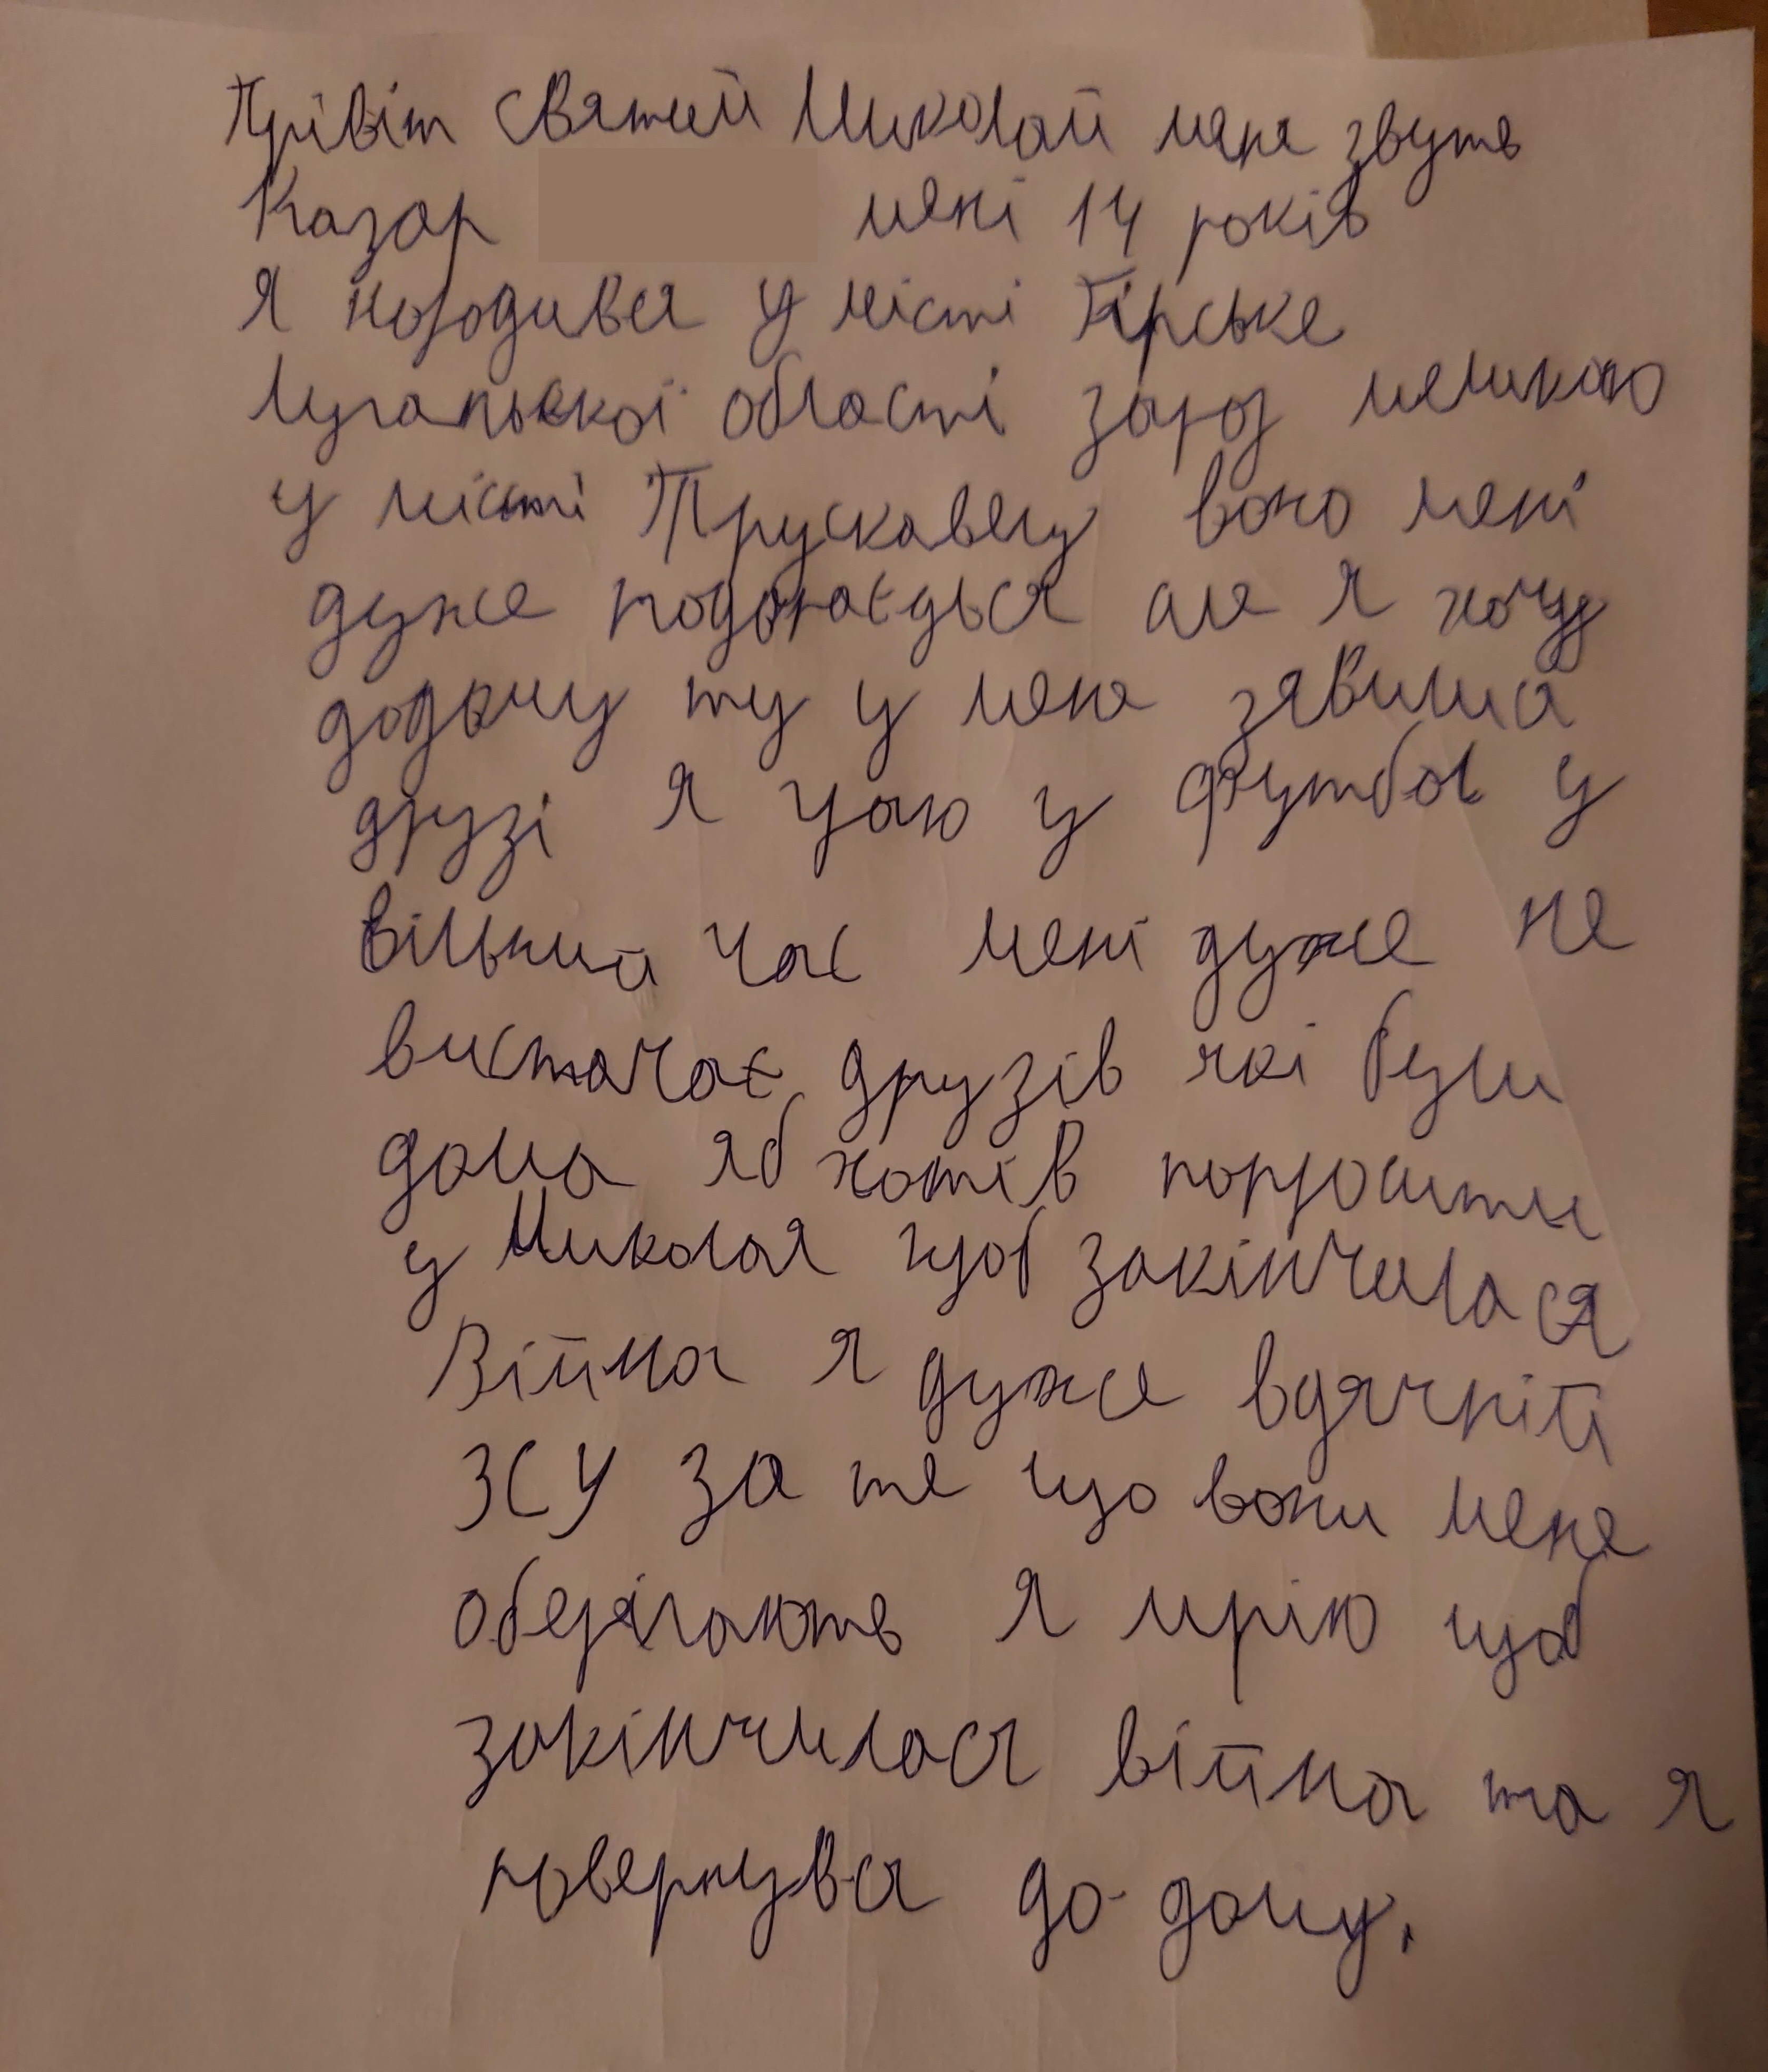 Прівіт святий Миколай мене звуть
Назар мені 14 років
Я народився у місті Гірське
Луганьскої області зараз мешкаю
у місті Трускавец воно мені
дуже подобаєдься але я хочу
додому ту у мене зявились
друзі я граю у футбол у
вільний час мені дуже не
вистачає друзів які були
дома яб хотів попросити
у Миколая щоб закінчилася
Війна я дуже вдячній
ЗСУ за те що вони мене
оберігають я мрію щоб
закінчилася війна та я
повернувся до дому.